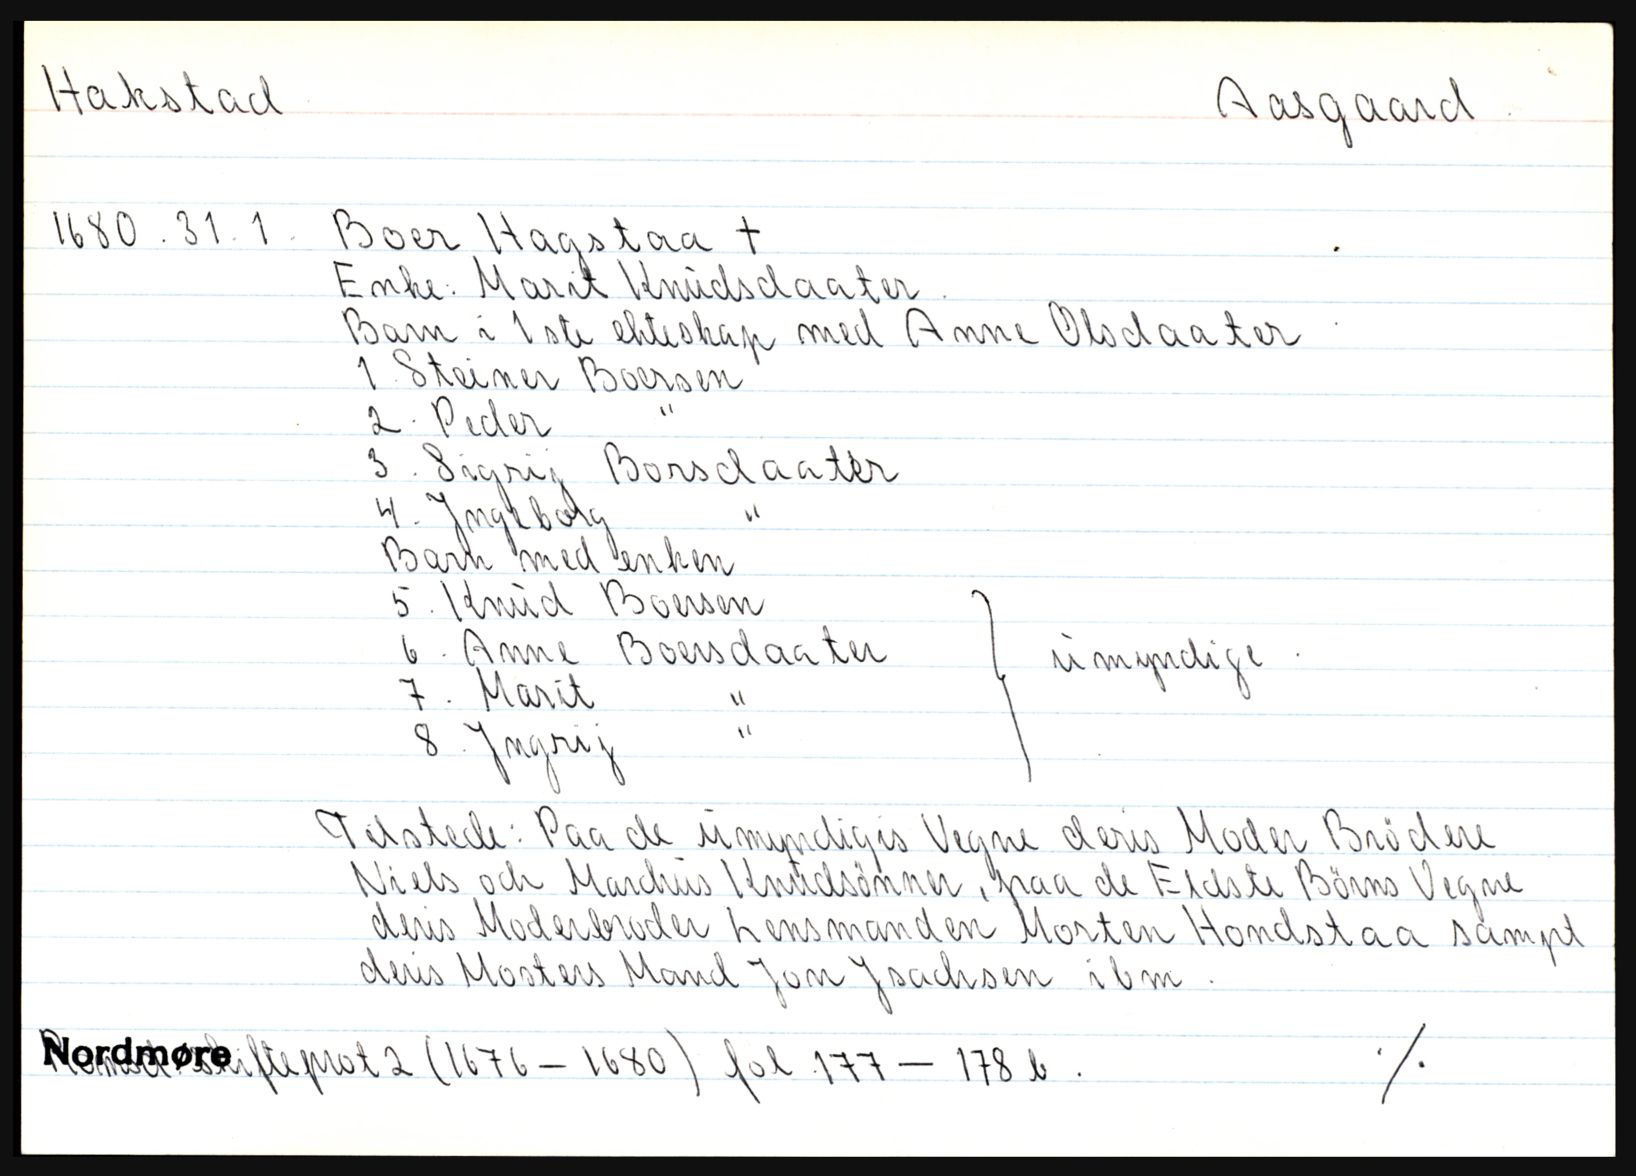 Hakstad Aasgaard
1680. 31. 1. Boer Hagstaa †
Enke: Marit Knŭdsdaater.
Barn i 1ste ekteskap med Anne Olsdaater
1 Steiner Boersen
2. Peder "
3. Sigrij Borsdaater
4. Yngeborg "
Barn med enken
5. Knŭd Boersen
6. Anne Boersdaater
7. Marit "
8. Yngrij "
ŭmyndige.
Tilstede: Paa de ŭmyndigis Vegne deris Moder Brödere
Niels och Marchŭs Knŭdsönner, paa de Eldste Börns Vegne
deris Moderbroder Lensmanden Morten Hondstaa sampt
deris Mosters Mand Jon Ysachsen ibm.
Nordmøre skifteprot 2 (1676 – 1680) fol 177 – 178 b. ./.